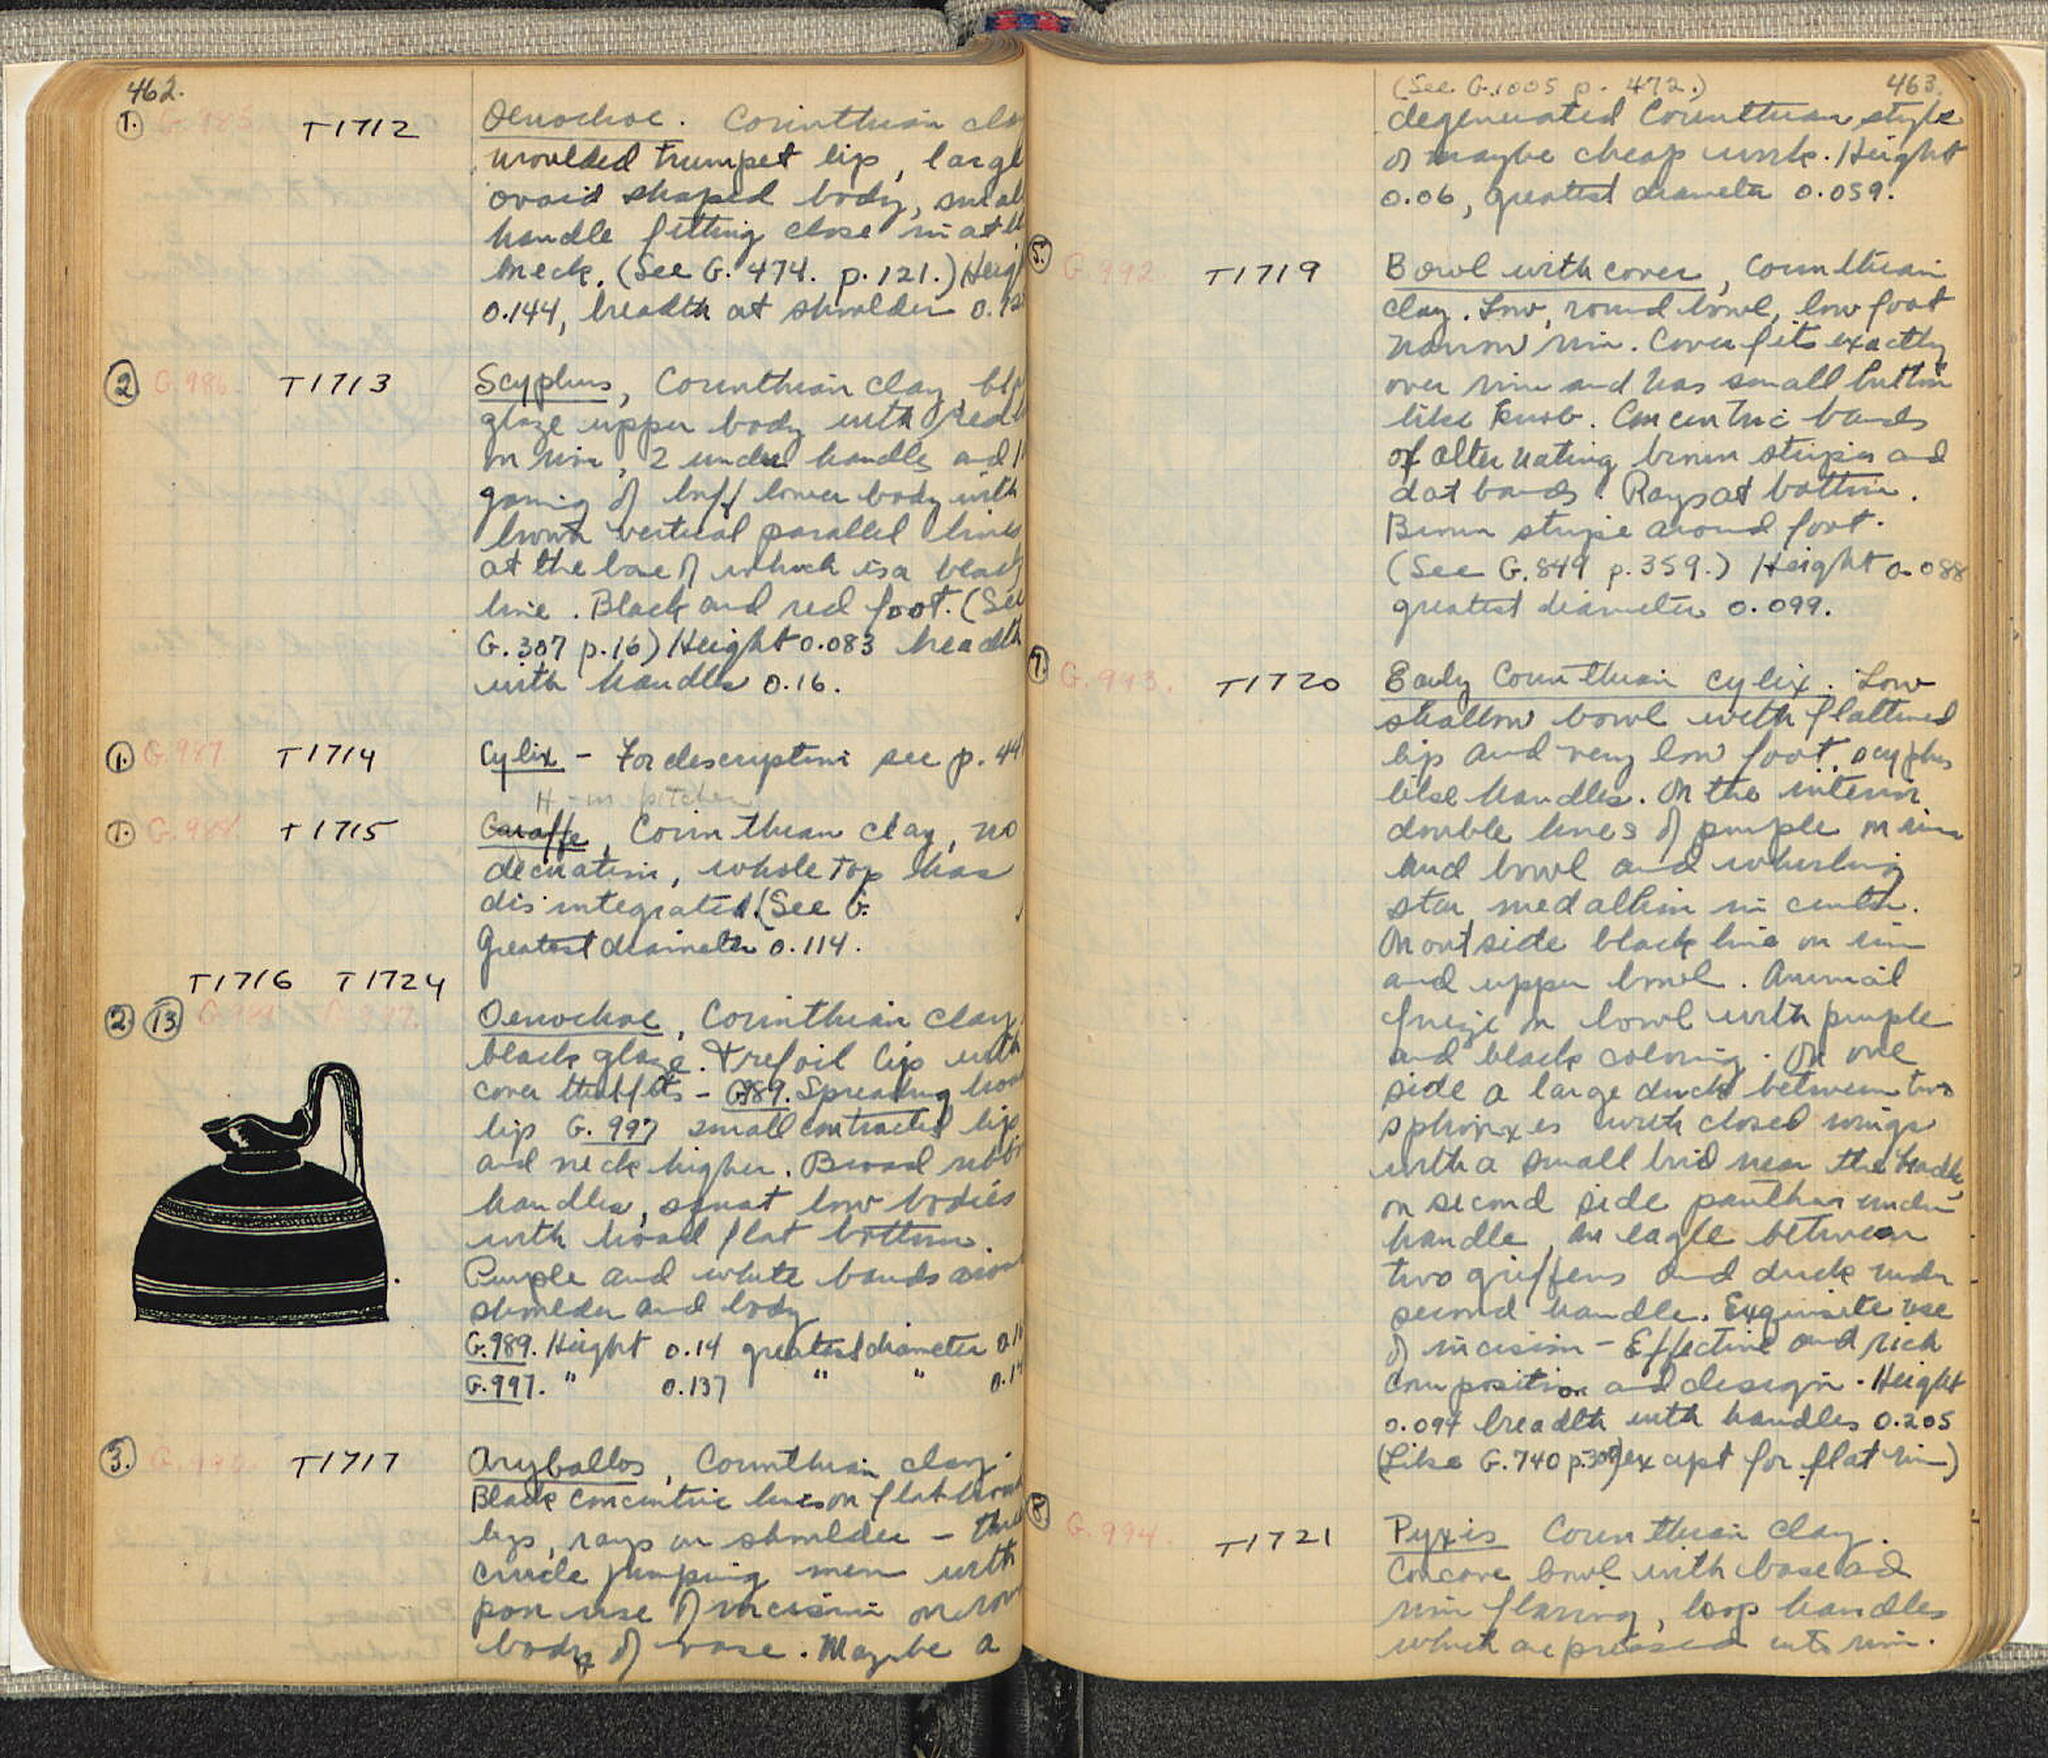 462.
1. G.985. T1712 Oenochoe. Corinthian clay
moulded trumpet lip, large
ovoid shaped body, small
handle fitting close in at
neck. (See G. 474. p. 121.) Height
0.144, breadth at shoulder 0.12
2 G.986. T1713 Scyphus, Corinthian clay, black
glaze upper body with red
on rim, 2 under handles and
going of buff lower body with
brown vertical parallel lines
at the base of which is a black
line. Black and red foot. (See
G. 307 p. 16) Height 0.083 breadth
with handles 0.16.
1. G.987. T1714 Cylix - For description see p. 44
H - in pitcher
1. G.988. T1715 Caraffe, Corinthian clay, no
decoration, whole top has
disintegrated. (See G.
Greatest diameter 0.114.
T1716 T1724
2. 13 G.989. G.997. Oenochoe, Corinthian clay
black glaze. Trefoil lip with
cover that fits - G989. Spreading
lip G. 997 small contracted lip
and neck higher. Broad ribbon
handles, squat low bodies
with broad flat bottom.
Purple and white bands around
shoulder and body
G.989. Height 0.14 greatest diameter 0.1
G.997. " 0.137 " " 0.1
3. G.990. T1717 Aryballos, Corinthian clay.
Black concentric lines on flat broad
lips, rays on shoulder - three
crude jumping men with
poor use of incision on
body of vase. Maybe a
(See G.1005 p. 472.) 463.
degenerated Corinthian style
or maybe cheap work. Height
0.06, greatest diameter 0.059.
5. G.992. T1719 Bowl with cover, Corinthian
clay. Low, round bowl, low foot
narrow rim. Cover fits exactly
over rim and has small button
like knob. Concentric bands
of alternating brown stripes and
dot bands. Rays at bottom.
Brown stripe around foot.
(See G.849 p.359.) Height 0.088
greatest diameter 0.099.
7. G.993. T1720 Early Corinthian cylix. Low
shallow bowl with flattened
lip and very low foot, scyphus
like handles. On the interior
double lines of purple on rim
and bowl and whirling
star medallion in center.
On outside black line on rim
and upper bowl. Animal
frieze on bowl with purple
and black coloring. On one
side a large duck between two
sphinxes with closed wings
with a small bird near the handle,
on second side panther under
handle, an eagle between
two griffens and duck under
second handle. Exquisite use
of incision - Effective and rich
composition and design. Height
0.094 breadth with handles 0.205
(Like G.740 p.308 except for flat rim)
8. G.994. T1721 Pyxis Corinthian clay.
Concave bowl with base and
rim flaring, loop handles
which are pressed into rim.